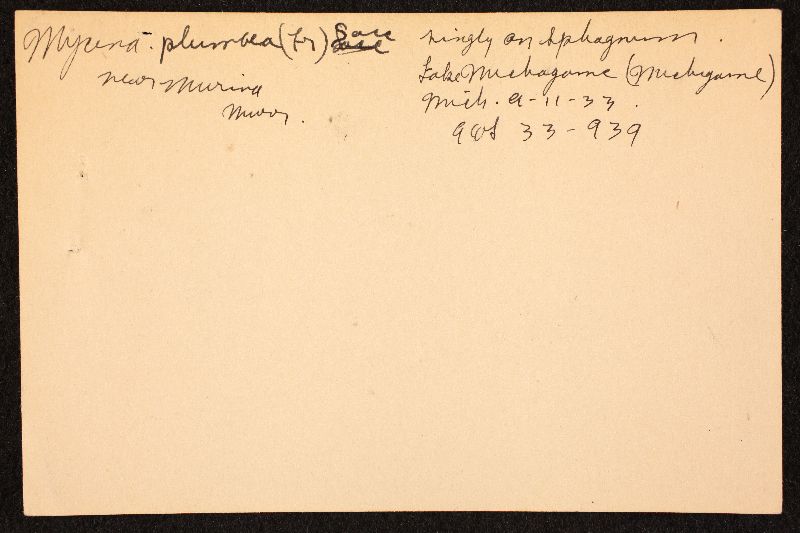 Mycena plumbea (Fr) Sacc
near murina
Murr.
singly on Sphagnum.
Lake Michagame (Michigame)
Mich. 9-11-33.
AHS 33-939